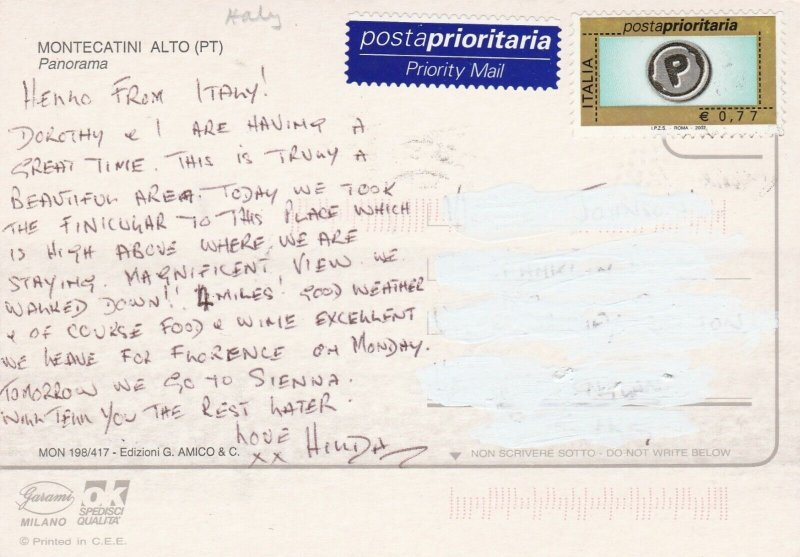 Italy.
MONTECATINI ALTO (PT)
Panorama
postaprioritaria
Priority Mail
postaprioritaria
ITALIA
P
€ 0,77
I.P.Z.S. - ROMA - 2002
HELLO FROM ITALY!
DOROTHY & I ARE HAVING A
GREAT TIME. THIS IS TRULY A
BEAUTIFUL AREA. TODAY WE TOOK
THE FINICULAR TO THIS PLACE WHICH
IS HIGH ABOVE WHERE WE ARE
STAYING. MAGNIFICENT VIEW. WE
WALKED DOWN!! 4 MILES! GOOD WEATHER
& OF COURSE FOOD & WINE EXCELLENT
WE LEAVE FOR FLORENCE ON MONDAY.
TOMORROW WE GO TO SIENNA.
WILL TELL YOU THE REST LATER.
LOVE HILDA
xx
MON 198/417 - Edizioni G. AMICO & C.
NON SCRIVERE SOTTO - DO NOT WRITE BELOW
Garami
MILANO
OK
SPEDISCI
QUALITA'
© Printed in C.E.E.